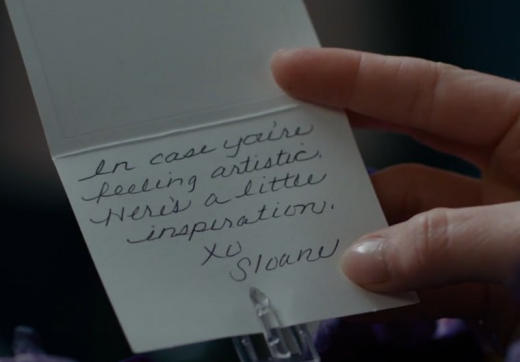 In case you're
feeling artistic.
Here's a little
inspiration.
xo
Sloane